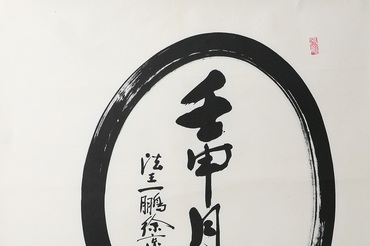 壬申月
法王一鵬徐京